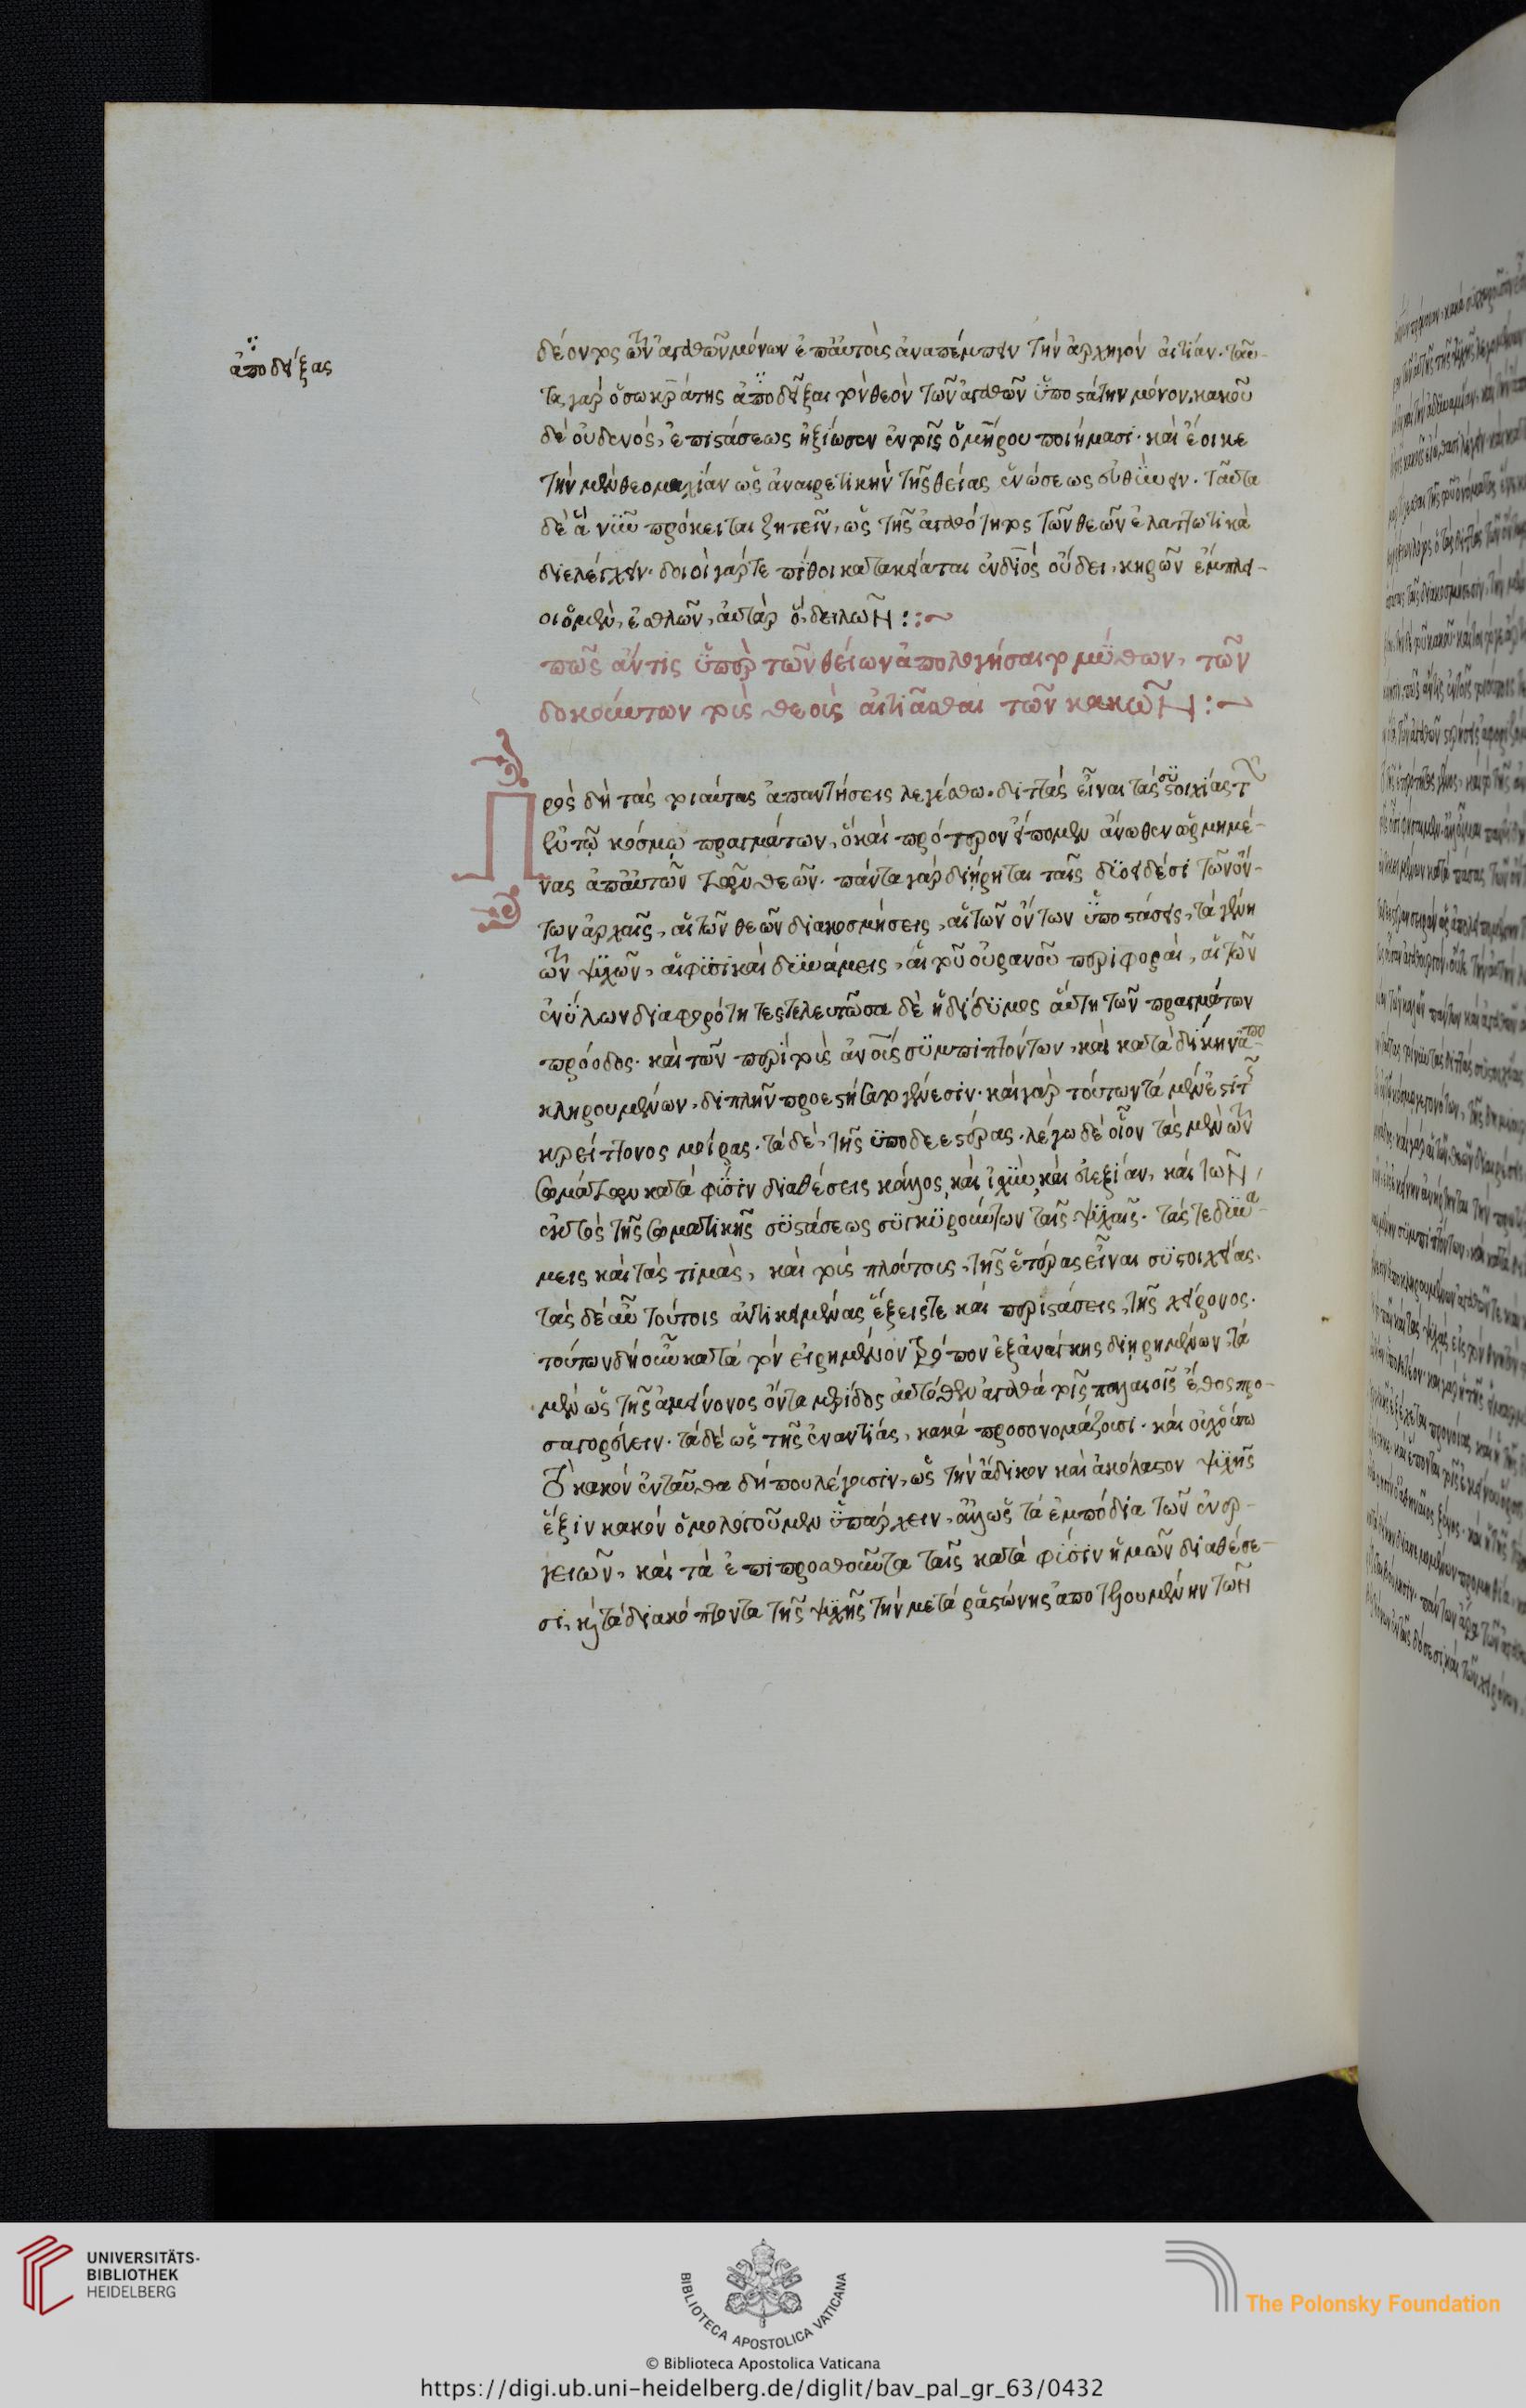 ἀποδείξας
δέοντος τῶν ἀγαθῶν μόνων ἐπ' αὐτοὺς ἀναπέμπειν τὴν ἀρχηγὸν αἰτίαν. ταῦ-
τα γὰρ ὁ σωκράτης ἀποδεῖξαι τὸν θεὸν τῶν ἀγαθῶν ὑποστάτην μόνον, κακοῦ
δὲ οὐδενός, ἐπιστάσεως ἠξίωσεν ἐν τοῖς ὁμήρου ποιήμασι. καὶ ἔοικε
τὴν μὲν θεομαχίαν ὡς ἀναιρετικὴν τῆς θείας ἑνώσεως εὐθύνειν. ταῦτα
δὲ ἃ νῦν πρόκειται ζητεῖν, ὡς τῆς ἀγαθότητος τῶν θεῶν ἐλαττωτικὰ
διελέγχειν. δοιοὶ γάρ τε πίθοι κατακείαται ἐν διὸς οὔδει, κηρῶν ἔμπλει-
οι ὁ μὲν, ἐσθλῶν, αὐτὰρ ὁ, δειλῶν :·~
πῶς ἄν τις ὑπὲρ τῶν θείων ἀπολογήσαιτο μύθων, τῶν
δοκούντων τοὺς θεοὺς αἰτιᾶσθαι τῶν κακῶν :~
Πρὸς δὴ τὰς τοιαύτας ἀπαντήσεις λεγέσθω. διττὰς εἶναι τὰς συστοιχίας τῶν
ἐν τῷ κόσμῳ πραγμάτων, ὃ καὶ πρότερον εἴπομεν ἄνωθεν ὡρμημέ-
νας ἀπ' αὐτῶν τῶν θεῶν. πάντα γὰρ διήρηται ταῖς δυοειδέσι τῶν ὄν-
των ἀρχαῖς, αἱ τῶν θεῶν διακοσμήσεις, αἱ τῶν ὄντων ὑποστάσεις, τὰ γένη
τῶν ψυχῶν, αἱ φυσικαὶ δυνάμεις, αἱ τοῦ οὐρανοῦ περιφοραί, αἱ τῶν
ἐνύλων διαφορότητες τελευτῶσα δὲ ἡ δίδυμος αὕτη τῶν πραγμάτων
πρόοδος. καὶ τῶν περὶ τοὺς ἀνους συμπιπτόντων, καὶ κατὰ δίκην ἀπο-
κληρουμένων, διπλῆν προεστήσατο γένεσιν. καὶ γὰρ τούτων τὰ μέν ἐστι τῆς
κρείττονος μοίρας. τὰ δὲ, τῆς ὑποδεεστέρας. λέγω δὲ οἷον τὰς μὲν τῶν
σωμάτων κατὰ φύσιν διαθέσεις κάλλος, καὶ ἰσχὺν καὶ εὐεξίαν, καὶ τῶν,
ἐκτὸς τῆς σωματικῆς συστάσεως συγκυρούντων ταῖς ψυχαῖς. τάς τε δυνά-
μεις καὶ τὰς τιμὰς, καὶ τοὺς πλούτους, τῆς ἑτέρας εἶναι συστοιχίας.
τὰς δὲ αὖ τούτοις ἀντικειμένας ἕξεις τε καὶ περιστάσεις, τῆς χείρονος.
τούτων δὴ οὖν κατὰ τὸν εἰρημένον τρόπον ἐξ ἀνάγκης διῃρημένων, τὰ
μὲν ὡς τῆς ἀμείνονος ὄντα μερίδος αὐτόθεν ἀγαθὰ τοῖς παλαιοῖς ἔθος προ-
σαγορεύειν. τὰ δὲ ὡς τῆς ἐναντίας, κακὰ προσονομάζουσι. καὶ οὐχ οὕτω
τὸ κακὸν ἐνταῦθα δήπου λέγουσιν, ὡς τὴν ἄδικον καὶ ἀκόλαστον ψυχῆς
ἕξιν κακὸν ὁμολογοῦμεν ὑπάρχειν, ἀλλ' ὡς τὰ ἐμπόδια τῶν ἐνερ-
γειῶν, καὶ τὰ ἐπιπροσθοῦντα ταῖς κατὰ φύσιν ἡμῶν διαθέσε-
σι, καὶ τὰ διακόπτοντα τῆς ψυχῆς τὴν μετὰ ῥᾳστώνης ἀποτελουμένην τῶν
UNIVERSITÄTS-
BIBLIOTHEK
HEIDELBERG
BIBLIOTECA APOSTOLICA VATICANA
The Polonsky Foundation
© Biblioteca Apostolica Vaticana
https://digi.ub.uni-heidelberg.de/diglit/bav_pal_gr_63/0432